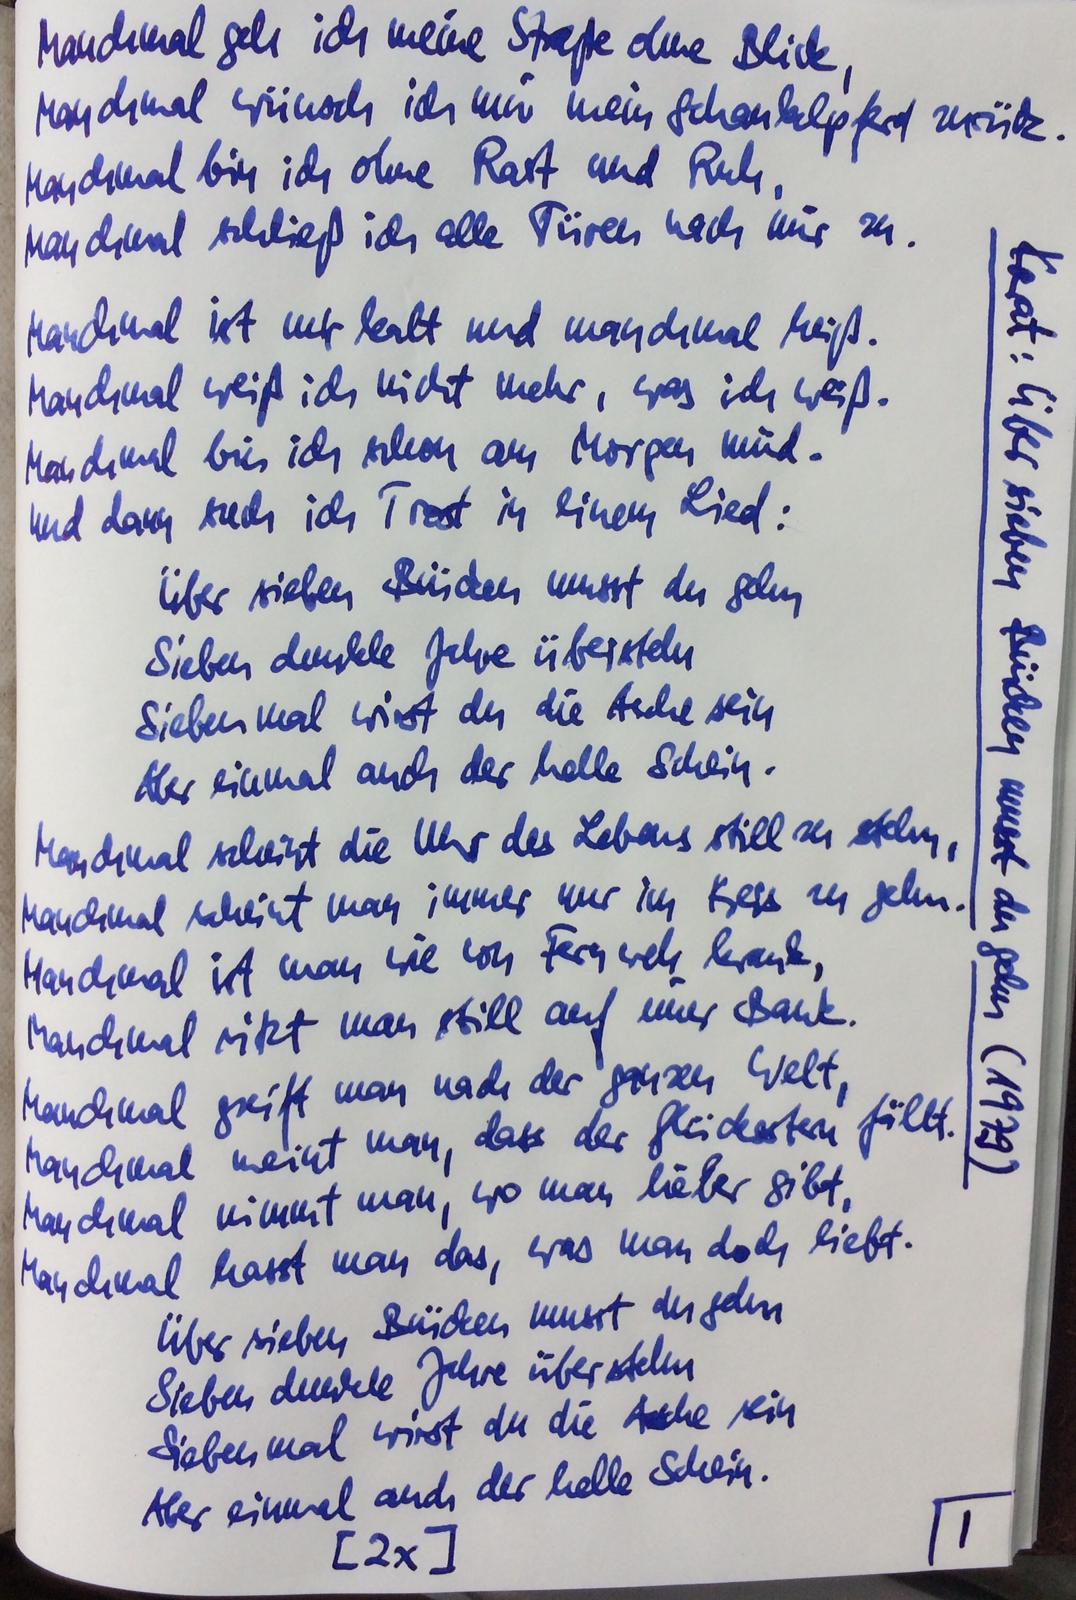 Manchmal geh ich meine Straße ohne Blick,
Manchmal wünsch ich mir mein Schaukelpferd zurück.
Manchmal bin ich ohne Rast und Ruh,
Manchmal schließ ich alle Türen nach mir zu.
Manchmal ist mir kalt und manchmal heiß.
Manchmal weiß ich nicht mehr, was ich weiß.
Manchmal bin ich schon am Morgen müd.
Und dann such ich Trost in einem Lied:
Über sieben Brücken musst du gehn
Sieben dunkle Jahre überstehn
Siebenmal wirst du die Asche sein
Aber einmal auch der helle Schein.
Manchmal scheint die Uhr des Lebens still zu stehn,
Manchmal scheint man immer nur im Kreis zu gehn.
Manchmal ist man wie von Fernweh krank,
Manchmal sitzt man still auf einer Bank.
Manchmal greift man nach der ganzen Welt,
Manchmal meint man, dass der Glücksstern fällt.
Manchmal nimmt man, wo man lieber gibt,
Manchmal hasst man das, was man doch liebt.
Über sieben Brücken musst du gehn
Sieben dunkle Jahre überstehn
Siebenmal wirst du die Asche sein
Aber einmal auch der helle Schein.
[2x]
Karat: Über sieben Brücken musst du gehn (1979)
1